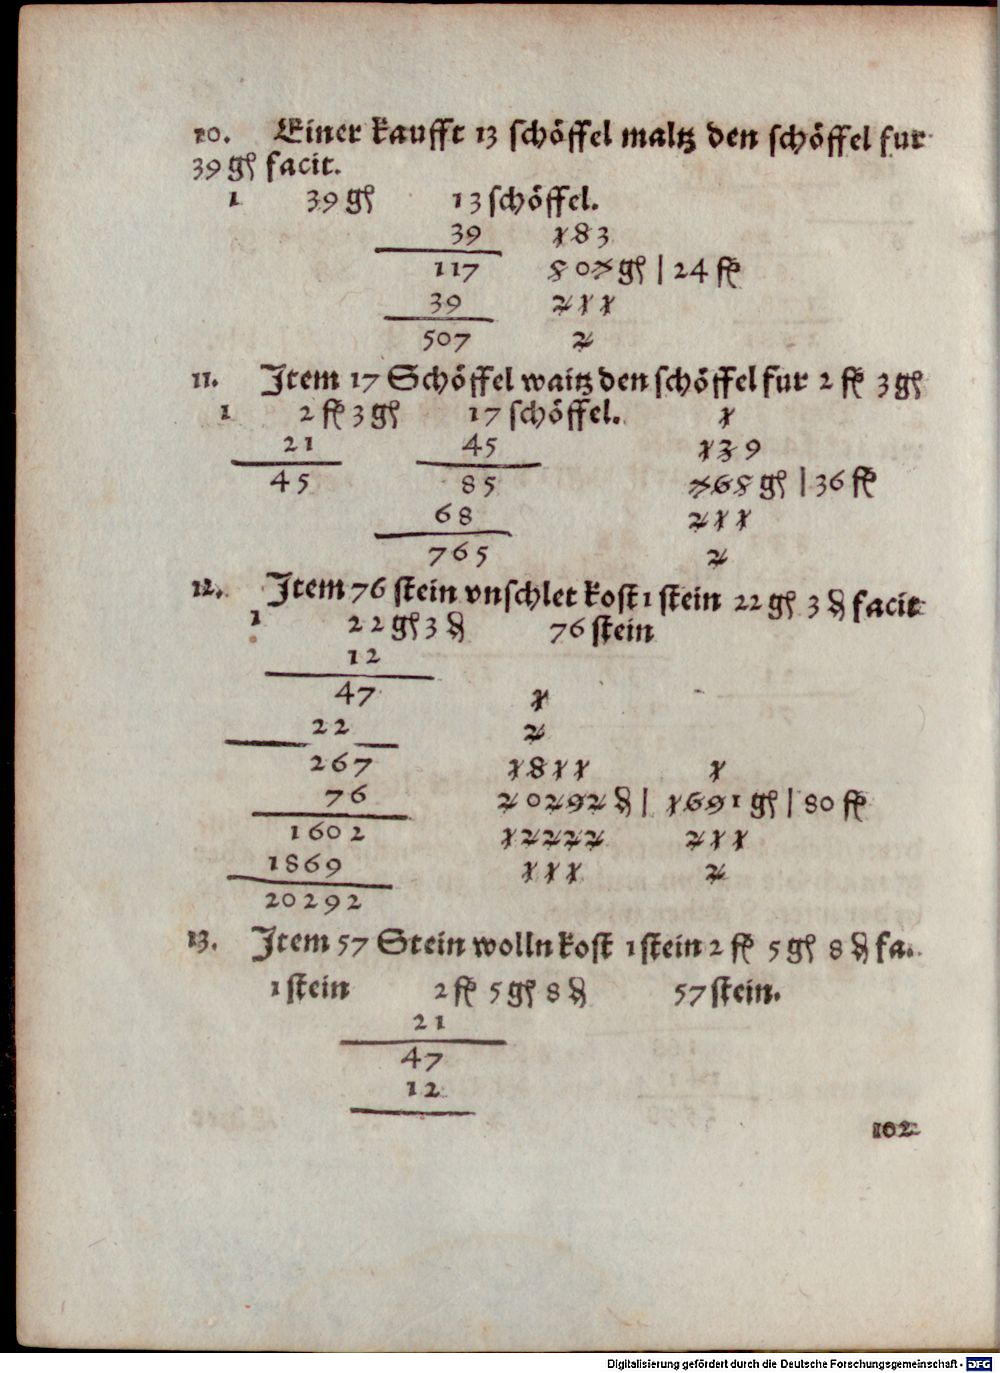 10. Einer kaufft 13 schöffel maltz den schöffel fur
39 gl facit.
1 39 gl 13 schöffel.
39 183
117 807 gl | 24 fl
39 211
507 2
11. Item 17 Schöffel waitz den schöffel fur 2 fl 3 gl
1 2 fl 3 gl 17 schöffel. 1
21 45 139
45 85 768 gl | 36 fl
68 211
765 2
12. Item 76 stein vnschlet kost 1 stein 22 gl 3 ₰ facit
1 22 gl 3 ₰ 76 stein
12
47 1
22 2
267 1811 1
76 20292 ₰ | 1691 gl | 80 fl
1602 12222 211
1869 111 2
20292
13. Item 57 Stein wolln kost 1 stein 2 fl 5 gl 8 ₰ fa.
1 stein 2 fl 5 gl 8 ₰ 57 stein.
21
47
12
102
Digitalisierung gefördert durch die Deutsche Forschungsgemeinschaft - DFG